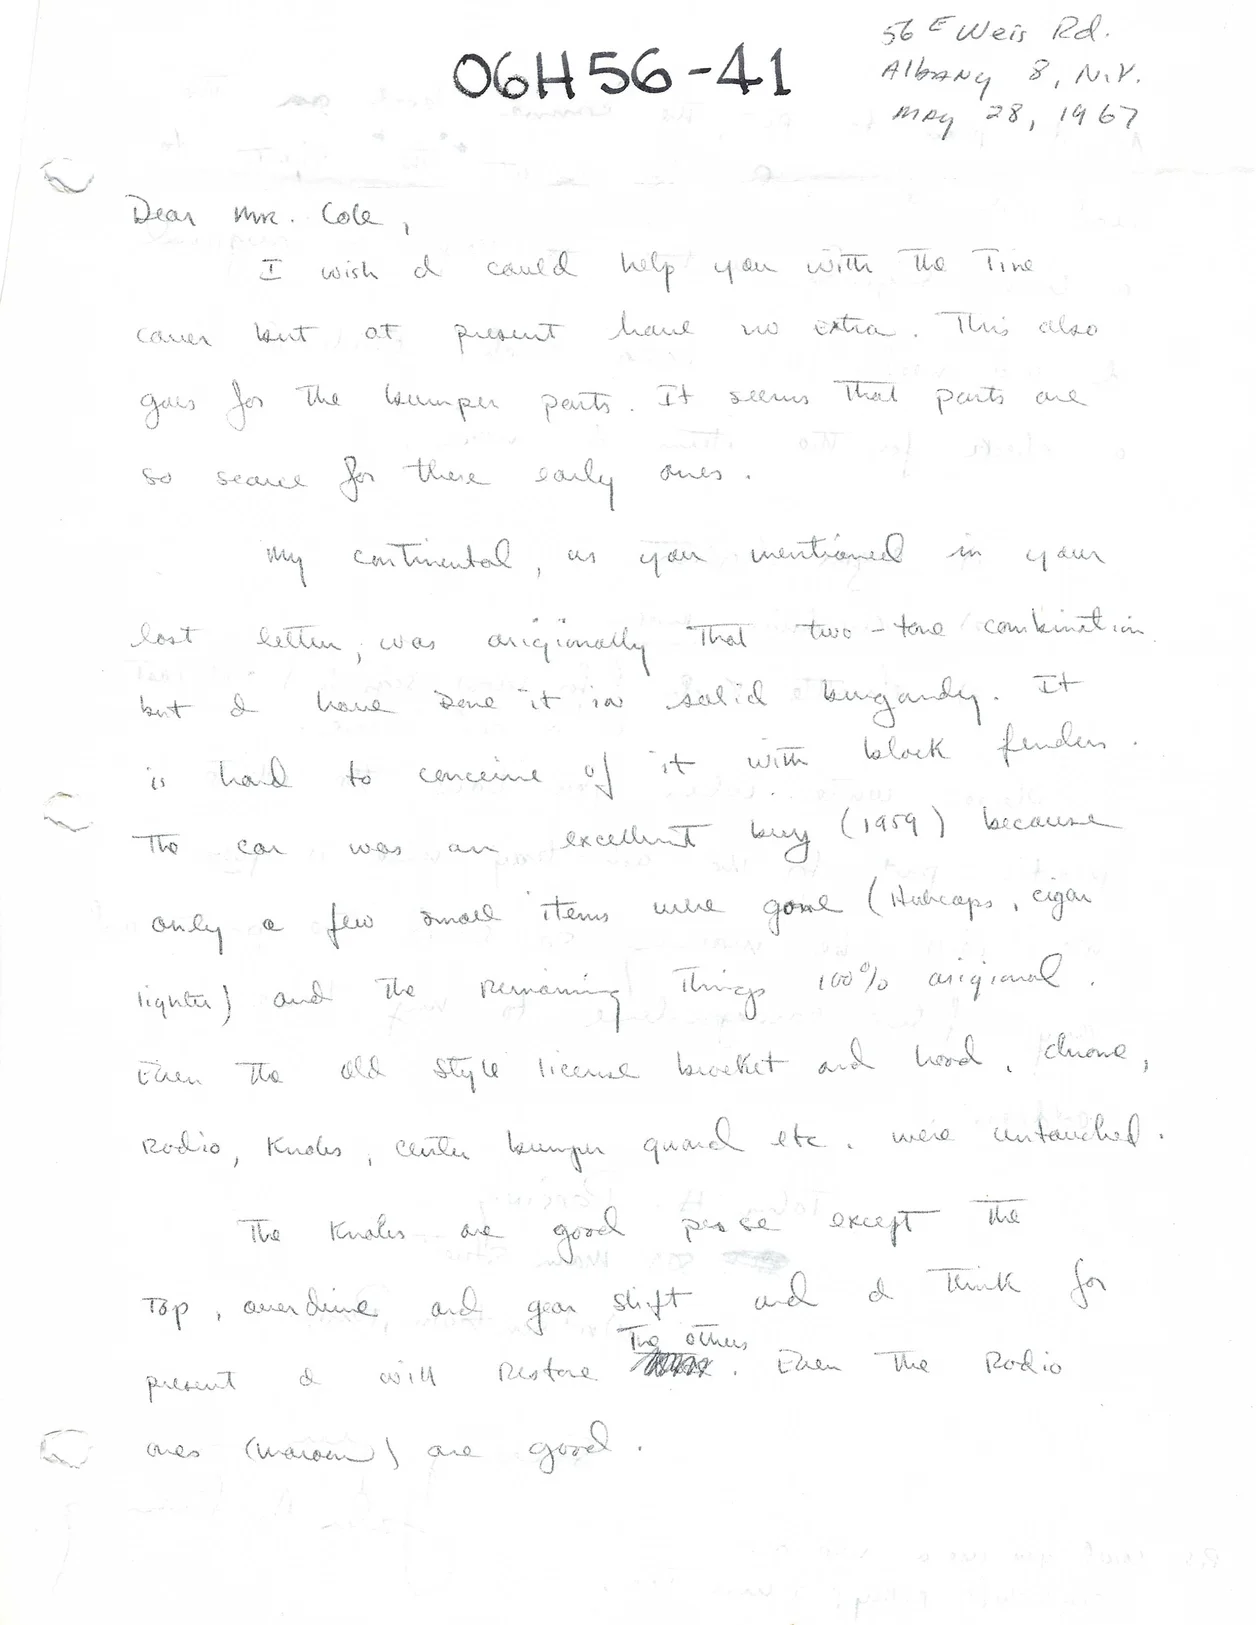 06H56-41
56 E Weis Rd.
Albany 8, N.Y.
May 28, 1967
Dear Mr. Cole,
I wish I could help you with the Tire
cover but at present have no extra. This also
goes for the bumper parts. It seems that parts are
so scarce for these early ones.
My continental, as you mentioned in your
last letter, was origionally that two-tone combination
but I have done it in solid burgandy. It
is hard to conceive of it with black fenders.
The car was an excellent buy (1959) because
only a few small items were gone (Hubcaps, cigar
lighter) and the remaining things 100% origional.
Even the old style license bracket and hood, chrome,
Radio, Knobs, center bumper guard etc. were untouched.
The Knobs are good except the
Top, overdrive and gear shift and I think for
present I will restore The others. Even the Radio
ones (maroon) are good.